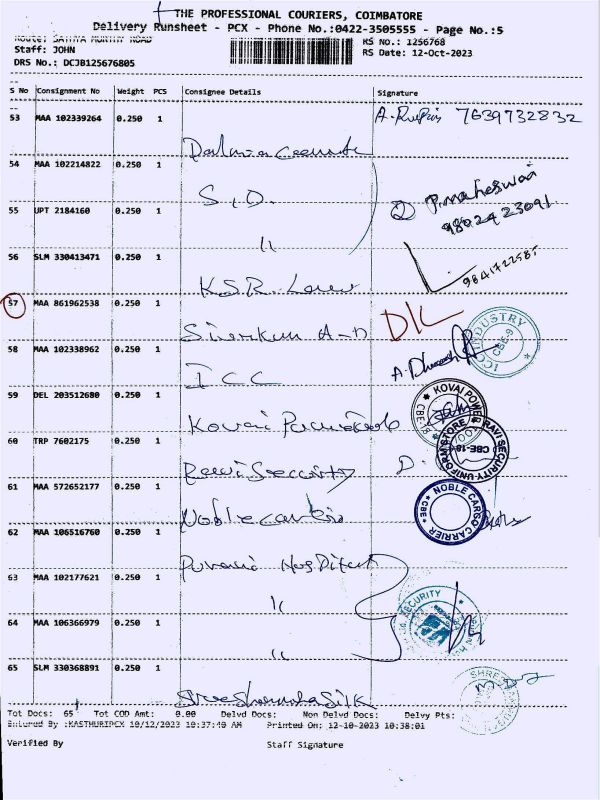 THE PROFESSIONAL COURIERS, COIMBATORE
Delivery Runsheet - PCX - Phone No.:0422-3505555 - Page No.:5
Route: SATHYA MURTHY ROAD RS No.: 1256768
Staff: JOHN RS Date: 12-Oct-2023
DRS No.: DCJB125676805
S No Consignment No Weight PCS Consignee Details Signature
53 MAA 102339264 0.250 1 7639732832
54 MAA 102214822 0.250 1 S.D. P. Maheswari
55 UPT 2184160 0.250 1 " 9802423091
56 SLM 330413471 0.250 1 K.S.R. 9841722585
57 MAA 861962538 0.250 1 D/L
58 MAA 102338962 0.250 1 I C C A. ICC INDUSTRY CBE-9
59 DEL 203512680 0.250 1 Kovai KOVAI POWER
60 TRP 7602175 0.250 1 Ravi Security D. RAVI SECURITY UNIFORM STORE CBE-18
61 MAA 572652177 0.250 1 Noble NOBLE CARGO CARRIER CBE
62 MAA 106516760 0.250 1 Hospital
63 MAA 102177621 0.250 1 " SECURITY
64 MAA 106366979 0.250 1 "
65 SLM 330368891 0.250 1 Silk SHREE
Tot Docs: 65 Tot COD Amt: 0.00 Delvd Docs: Non Delvd Docs: Delvy Pts:
Entered By :KASTHURIPCX 10/12/2023 10:37:40 AM Printed On: 12-10-2023 10:38:01
Verified By Staff Signature